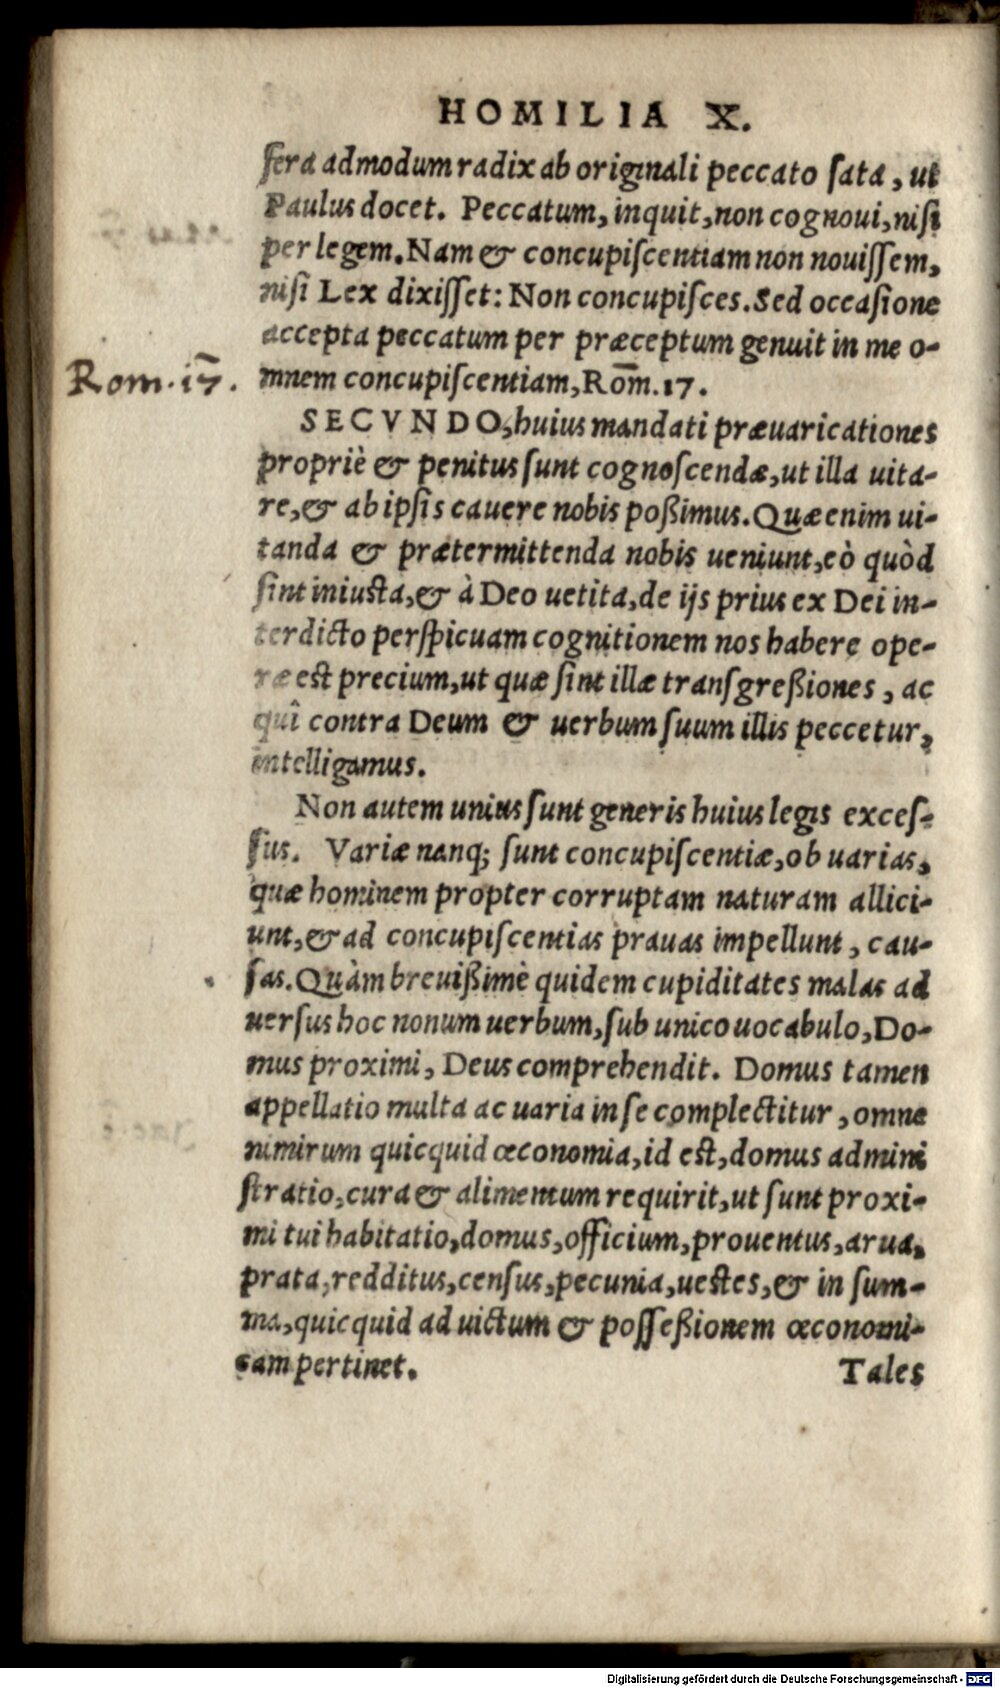 HOMILIA X.
fera admodum radix ab originali peccato sata, ut
Paulus docet. Peccatum, inquit, non cognoui, nisi
per legem. Nam & concupiscentiam non nouissem,
nisi Lex dixisset: Non concupisces. Sed occasione
accepta peccatum per præceptum genuit in me o-
Rom. 17. mnem concupiscentiam, Rom̄. 17.
SECVNDO, huius mandati præuaricationes
propriè & penitus sunt cognoscendæ, ut illa uita-
re, & ab ipsis cauere nobis poßimus. Quæ enim ui-
tanda & prætermittenda nobis ueniunt, eò quòd
sint iniusta, & à Deo uetita, de ijs prius ex Dei in-
terdicto perspicuam cognitionem nos habere ope-
ræ est precium, ut quæ sint illæ transgreßiones, ac
quî contra Deum & uerbum suum illis peccetur,
intelligamus.
Non autem unius sunt generis huius legis exces-
sus. Variæ nanq; sunt concupiscentiæ, ob uarias,
quæ hominem propter corruptam naturam allici-
unt, & ad concupiscentias prauas impellunt, cau-
sas. Quàm breuißimè quidem cupiditates malas ad
uersus hoc nonum uerbum, sub unico uocabulo, Do-
mus proximi, Deus comprehendit. Domus tamen
appellatio multa ac uaria in se complectitur, omne
nimirum quicquid œconomia, id est, domus admini
stratio, cura & alimentum requirit, ut sunt proxi-
mi tui habitatio, domus, officium, prouentus, arua,
prata, redditus, census, pecunia, uestes, & in sum-
ma, quicquid ad uictum & posseßionem œconomi-
cam pertinet.
Tales
Digitalisierung gefördert durch die Deutsche Forschungsgemeinschaft - DFG